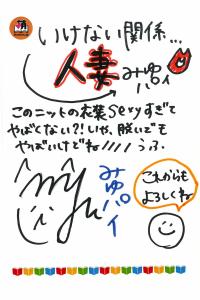 いけない関係...
人妻
みゆパイ
このニットの衣装sexyすぎて
やばくない?!いや、脱いでも
やばいけどね///// うふ。
miyu
みゆパイ
これからも
よろしくね